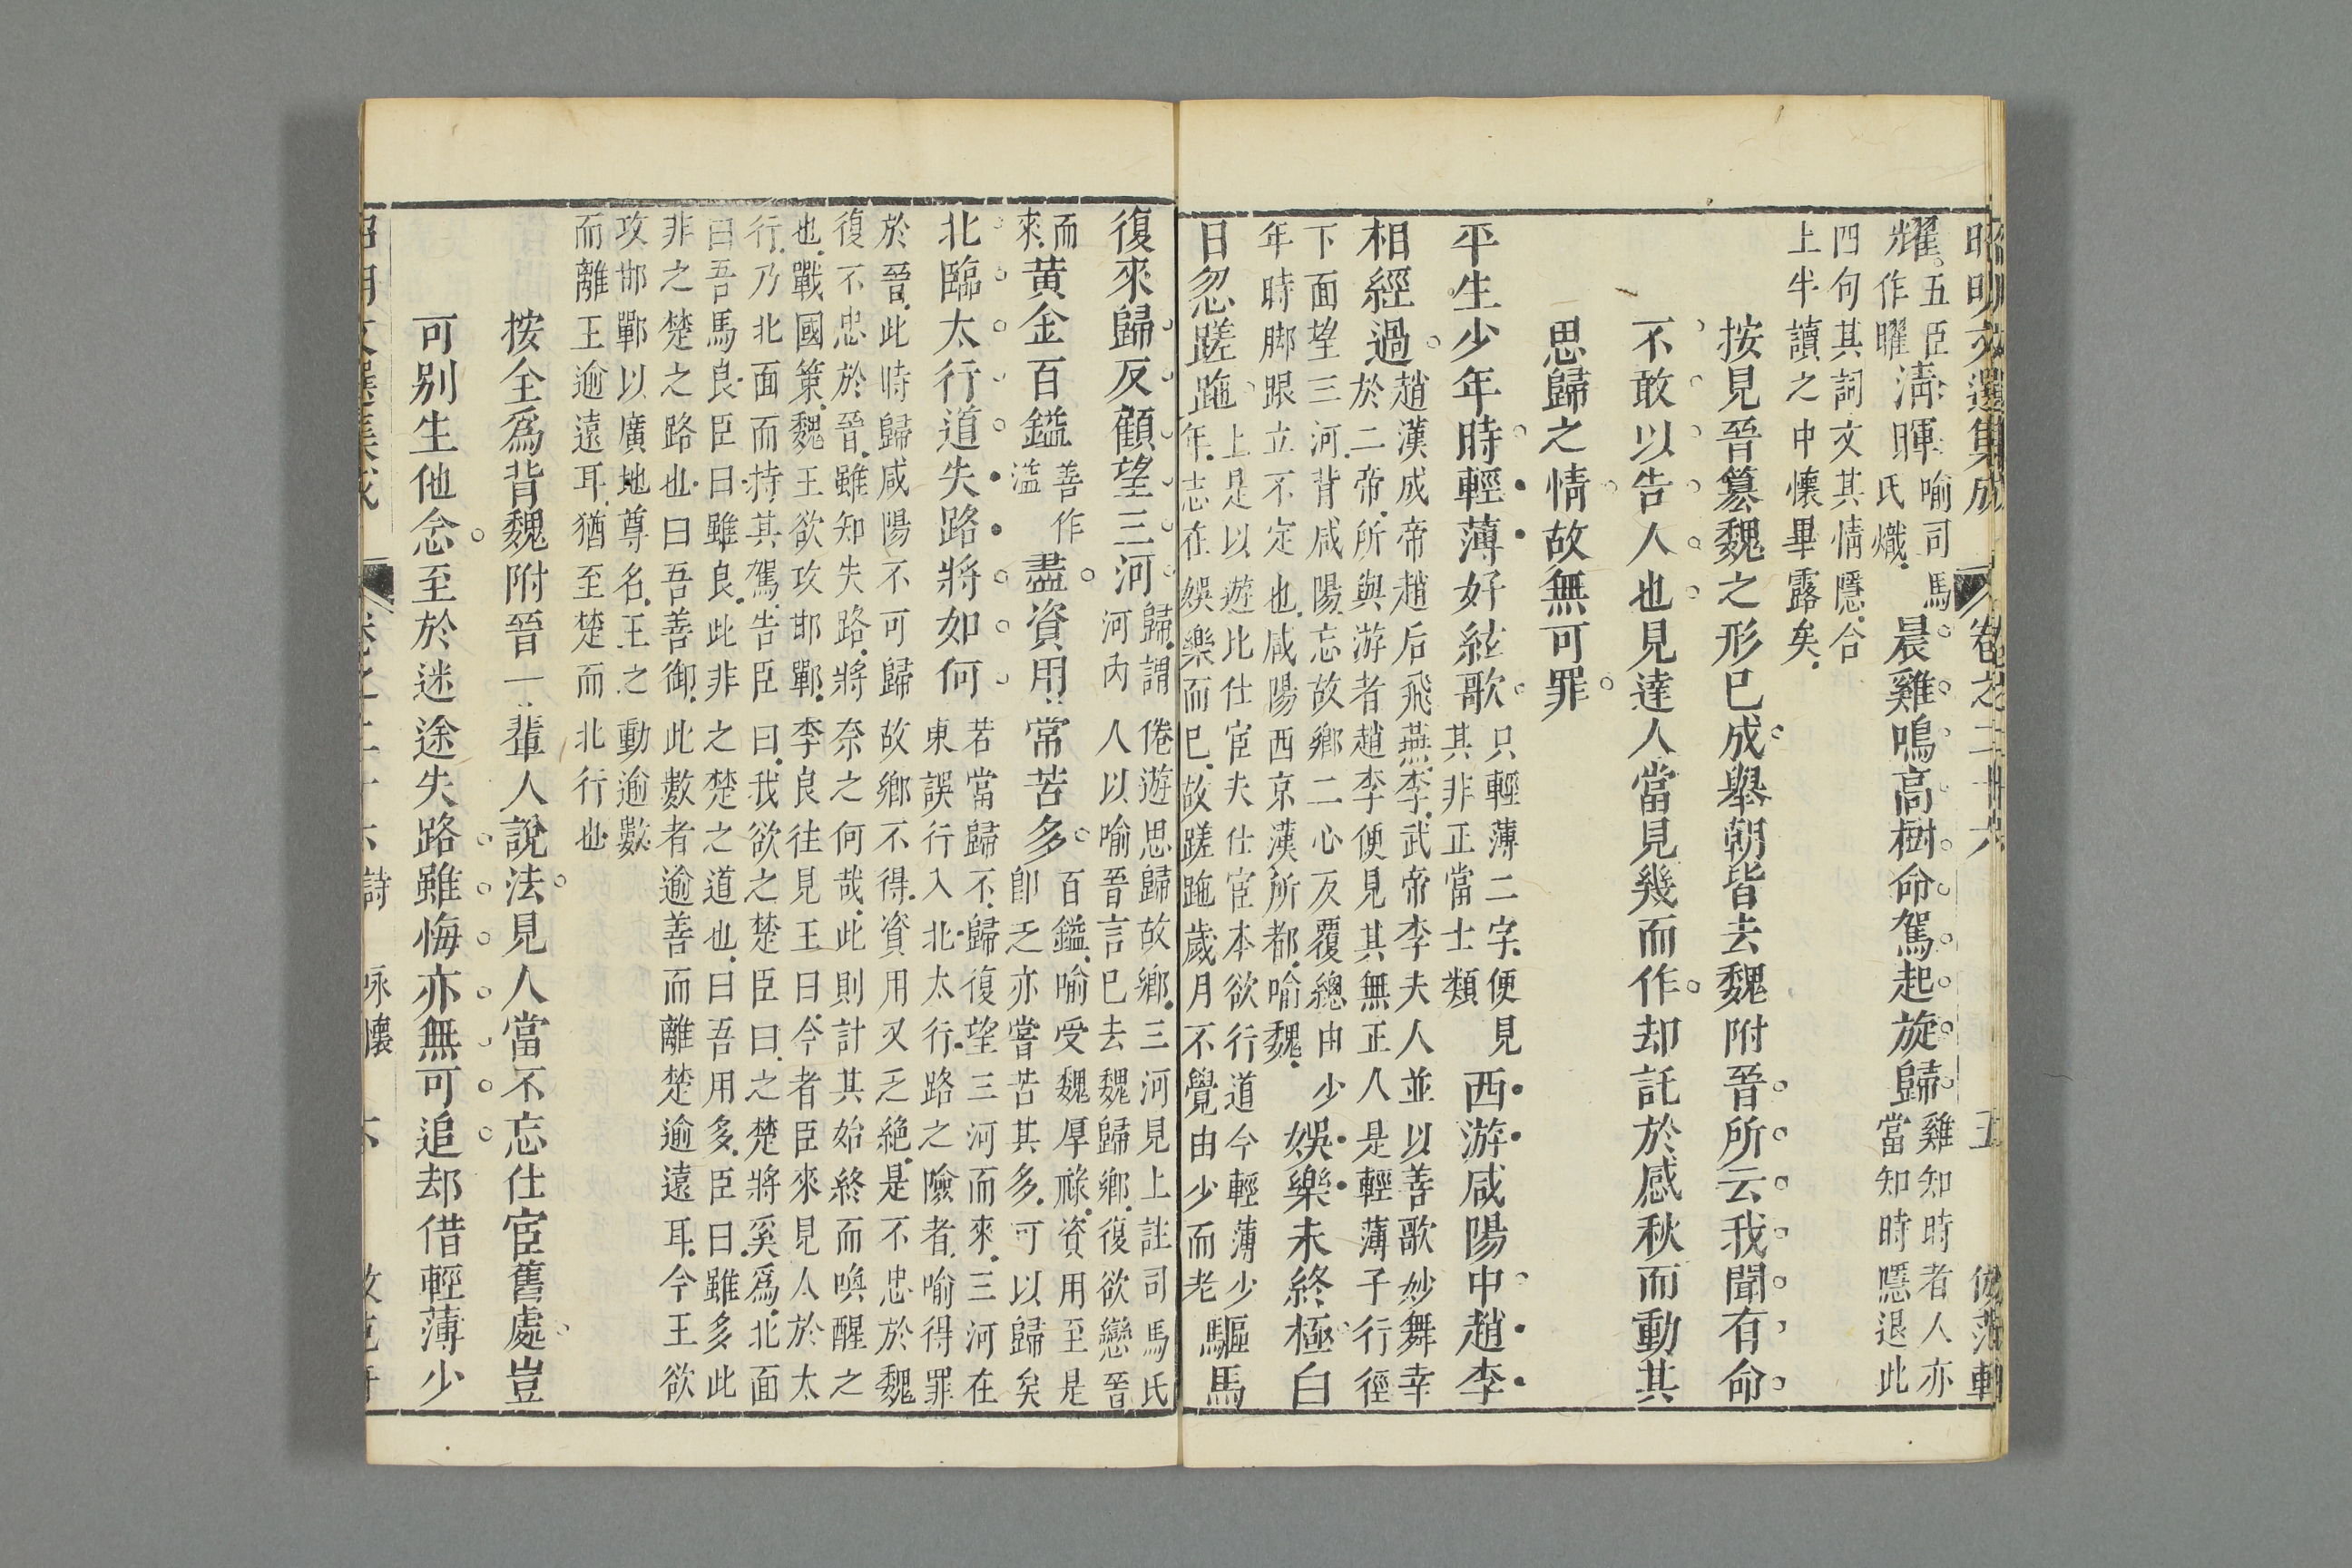 昭明文選集成 卷之二十六 五 倣范軒
耀五臣作曜清暉喻司馬氏熾晨雞鳴高樹命駕起旋歸雞知時者人亦當知時隱退此
四句其詞文其情隱合
上半讀之中懷畢露矣
按見晉篡魏之形已成舉朝皆去魏附晉所云我聞有命
不敢以告人也見達人當見幾而作却託於感秋而動其
思歸之情故無可罪
平生少年時輕薄好絃歌只輕薄二字便見其非正當士類西游咸陽中趙李
相經過趙漢成帝趙后飛燕李武帝李夫人並以善歌妙舞幸
於二帝所與游者趙李便見其無正人是輕薄子行徑
下面望三河背咸陽忘故鄉二心反覆總由少
年時脚跟立不定也咸陽西京漢所都喻魏娛樂未終極白
日忽蹉跎上是以遊比仕宦夫仕宦本欲行道今輕薄少
年志在娛樂而已故蹉跎歲月不覺由少而老驅馬
復來歸反顧望三河歸謂倦遊思歸故鄉三河見上註司馬氏
河内人以喻晉言已去魏歸鄉復欲戀晉
而來黄金百鎰善作溢盡資用常苦多百鎰喻受魏厚祿資用至是
卽乏亦嘗苦其多可以歸矣
北臨太行道失路將如何若當歸不歸復望三河而來三河在
東誤行入北太行路之險者喻得罪
於晉此時歸咸陽不可歸故鄉不得資用又乏絶是不忠於魏
復不忠於晉雖知失路將奈之何哉此則計其始終而喚醒之
也戰國策魏王欲攻邯鄲李良往見王曰今者臣來見人於太
行乃北面而持其駕告臣曰我欲之楚臣曰之楚將奚爲北面
曰吾馬良臣曰雖良此非之楚之道也曰吾用多臣曰雖多此
非之楚之路也曰吾善御此數者逾善而離楚逾遠耳今王欲
攻邯鄲以廣地尊名王之動逾數
而離王逾遠耳猶至楚而北行也
按全爲背魏附晉一輩人說法見人當不忘仕宦舊處豈
可别生他念至於迷途失路雖悔亦無可追却借輕薄少
昭明文選集成 卷之二十六 詩 咏懷 六